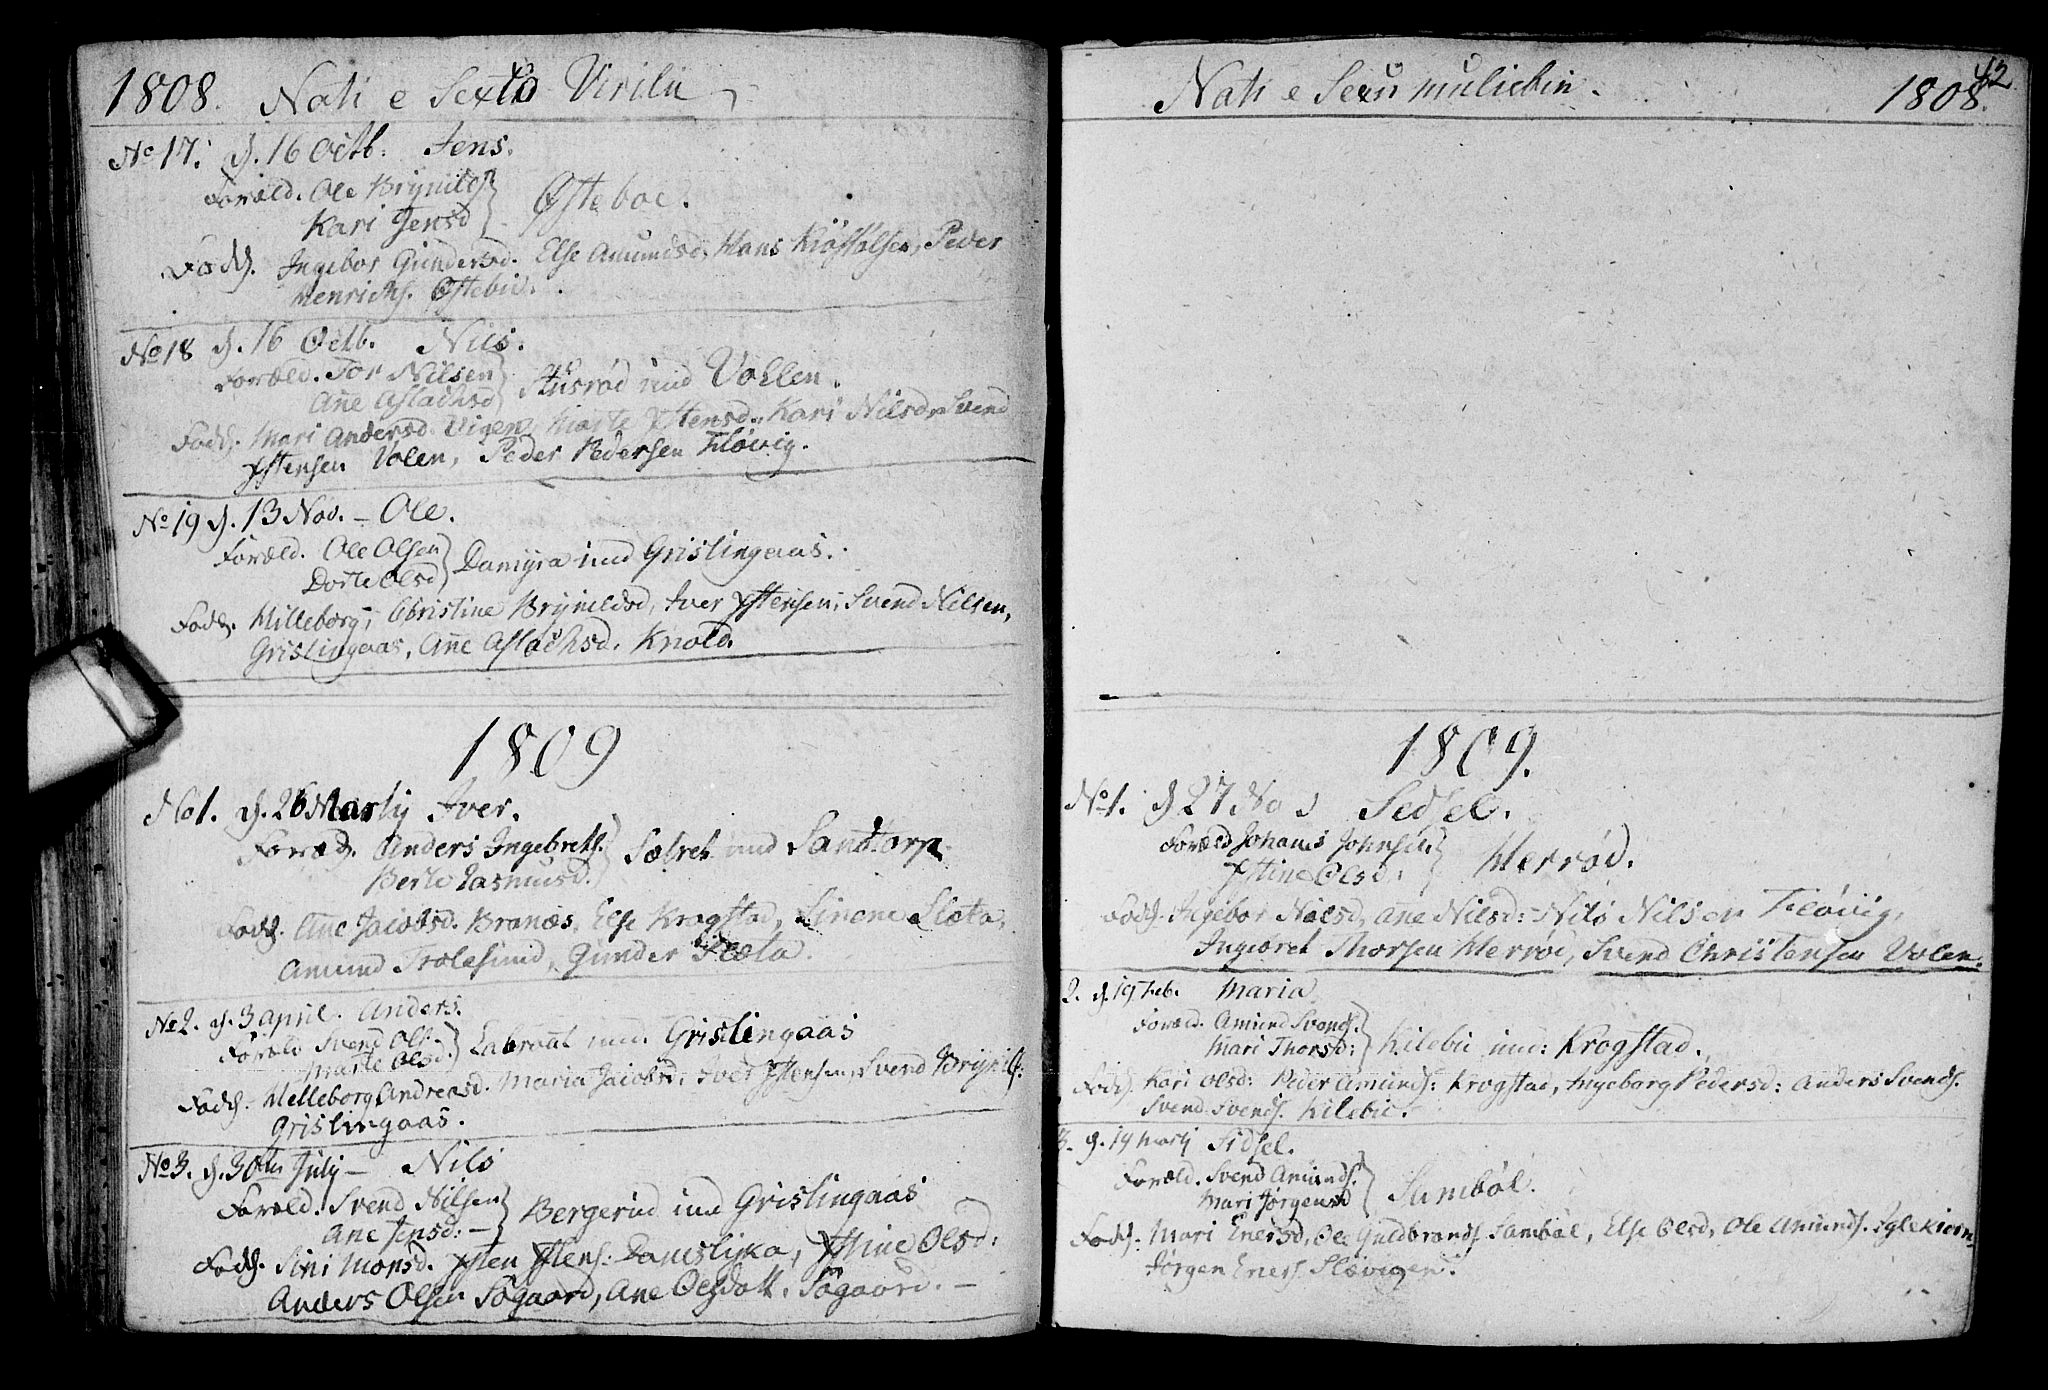 1808. Nati e Sexto Virili
No 17. d. 16 Octb: Jens.
Foræld. Ole Brynilds
Kari Jensd
Østeboe.
Fadd. Ingebor Gundersd. Else Amundsd, Hans Kiøstolsen, Peder
Henrichs. Østebie.
No 18 d. 16 Octb. Nils.
Foræld. Tor Nilsen
Ane Aslachsd
Stusrød und Vollen.
Fadd. Mari Andersd. Vigen, Marte Ystensd., Kari Nilsd, Svend
Ystensen Volen, Peder Pedersen Fløvig.
No 19 d. 13 Nov. – Ole.
Foræld. Ole Olsen
Dorte Olsd
Damyra und Grislingaas.
Fadd. Hilleborg, Christine Bryneldsd, Iver Ystensen, Svend Nilsen,
Grislingaas, Ane Aslachsd. Knold.
1809
No 1. d. 26 Martij Iver.
Foræld. Anders Ingebrets.
Berte Rasmusd.
und Sandtorp
Fadd. Ane Jacobsd. Branæs, Else Krogstad, Sirene Sleta,
Amund Trolesund, Gunder Sleta.
No 2. d. 3 April. Anders.
Foræld Svend Ols.
Marte Olsd.
Labraat und. Grislingaas
Fadd. Helleborg Andreasd. Maria Jacobsd, Iver Ystensen, Svend Brynils:
Grislingaas.
No 3. d. 30te July – Nils
Foræld. Svend Nilsen
Ane Jensd: –
Bergerud und Grislingaas
Fadd. Siri Monsd. Ysten Ystens: Damslyka, Ystine Olsd:
Anders Olsen Søgaard, Ane Olsdatt. Søgaard. –
Nati e Sexu muliebri. 1808.
42
1809.
No 1. d 27 Sedsel.
Foræld Johanes Johnsen
Ystine Olsd.
Herrød.
Fadd. Ingebor Nilsd, Ane Nilsd: Nils Nilsen Fløvig,
Ingebret Thorsen Herrød, Svend Christensen Volen.
2. d. 19 Feb. Maria
Foræld. Amund Svends.
Mari Thorsd:
Kilebu und: Krogstad.
Fadd. Kari Olsd: Peder Amunds: Krogstad, Ingeborg Pedersd: Anders Svends.
Svend Svends. Kilebie.
3. d. 19 Martj Sidsel.
Foræld. Svend Amunds.
Mari Jørgensd
Sambøl.
Fadd. Mari Enersd, Ole Guldbrands. Sambøl, Else Olsd, Ole Amunds. Iglekiern
Jørgen Eners. Slævigen.